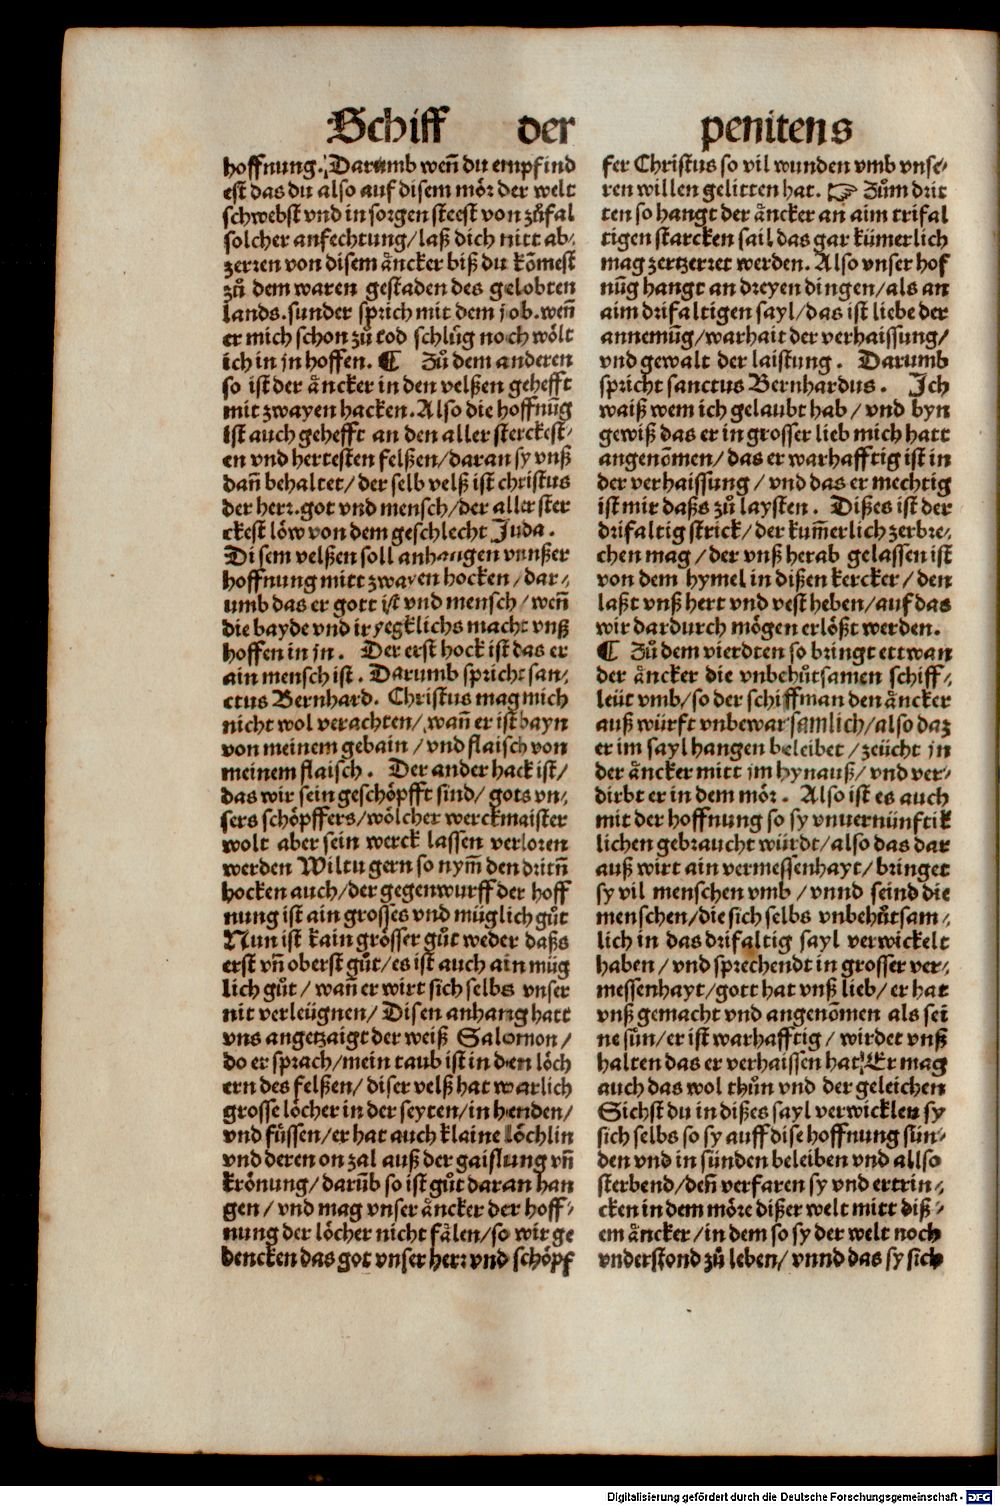 Schiff der penitens
hoffnung. Darumb weñ du empfind
est das du also auf disem mör der welt
schwebst vnd in sorgen steest von zůfal
solcher anfechtung/laß dich nitt ab⸗
zerren von disem åncker biß du kõmest
zů dem waren gestaden des gelobten
lands. sunder sprich mit dem job. weñ
er mich schon zů tod schlůg noch wölt
ich in jn hoffen. ¶ Zů dem anderen
so ist der åncker in den velßen gehefft
mit zwayen hacken. Also die hoffnũg
ist auch gehefft an den aller sterckest⸗
en vnd hertesten felßen/daran sy vnß
dañ behaltet/der selb velß ist christus
der herr. got vnd mensch/der aller ster
ckest löw von dem geschlecht Juda.
Disem velßen soll anhangen vnnßer
hoffnung mitt zwayen hocken/dar⸗
umb das er gott ist vnd mensch/weñ
die bayde vnd ir yegklichs macht vnß
hoffen in jn. Der erst hock ist das er
ain mensch ist. Darumb spricht san⸗
ctus Bernhard. Christus mag mich
nicht wol verachten/wañ er ist bayn
von meinem gebain/vnd flaisch von
meinem flaisch. Der ander hack ist/
das wir sein geschöpfft sind/gots vn⸗
sers schöpffers/wölcher werckmaister
wolt aber sein werck lassen verloren
werden Wiltu gern so nym̃ den dritñ
hocken auch/der gegenwurff der hoff
nung ist ain grosses vnd müglich gůt
Nun ist kain grösser gůt weder daßs
erst vñ oberst gůt/es ist auch ain müg
lich gůt/wañ er wirt sich selbs vnser
nit verleügnen/Disen anhang hatt
vns angetzaigt der weiß Salomon/
do er sprach/mein taub ist in den löch
ern des felßen/diser velß hat warlich
grosse löcher in der seyten/in henden/
vnd füssen/er hat auch klaine löchlin
vnd deren on zal auß der gaislung vñ
krönung/darũb so ist gůt daran han
gen/vnd mag vnser åncker der hoff⸗
nung der löcher nicht fälen/so wir ge
dencken das got vnser herr vnd schöpf
fer Christus so vil wunden vmb vnse⸗
ren willen gelitten hat. ☞ Zům drit
ten so hangt der åncker an aim trifal
tigen starcken sail das gar kümerlich
mag zertzerret werden. Also vnser hof
nũg hangt an dreyen dingen/als an
aim drifaltigen sayl/das ist liebe der
annemũg/warhait der verhaissung/
vnd gewalt der laistung. Darumb
spricht sanctus Bernhardus. Ich
waiß wem ich gelaubt hab/vnd byn
gewiß das er in grosser lieb mich hatt
angenõmen/das er warhafftig ist in
der verhaissung/vnd das er mechtig
ist mir daßs zů laysten. Dißes ist der
drifaltig strick/der kum̃erlich zerbre⸗
chen mag/der vnß herab gelassen ist
von dem hymel in dißen kercker/den
laßt vnß hert vnd vest heben/auf das
wir dardurch mögen erlößt werden.
¶ Zů dem vierdten so bringt ettwan
der åncker die vnbehůtsamen schiff⸗
leüt vmb/so der schiffman den åncker
auß würft vnbewarsamlich/also daz
er im sayl hangen beleibet/zeücht jn
der åncker mitt jm hynauß/vnd ver⸗
dirbt er in dem mör. Also ist es auch
mit der hoffnung so sy vnuernünftik
lichen gebraucht würdt/also das dar
auß wirt ain vermessenhayt/bringet
sy vil menschen vmb/vnnd seind die
menschen/die sich selbs vnbehůtsam⸗
lich in das drifaltig sayl verwickelt
haben/vnd sprechendt in grosser ver⸗
messenhayt/gott hat vnß lieb/er hat
vnß gemacht vnd angenõmen als sei
ne sün/er ist warhafftig/wirdet vnß
halten das er verhaissen hat. Er mag
auch das wol thůn vnd der geleichen
Sichst du in dißes sayl verwicklen sy
sich selbs so sy auff dise hoffnung sün⸗
den vnd in sünden beleiben vnd allso
sterbend/deñ verfaren sy vnd ertrin⸗
cken in dem möre dißer welt mitt diß⸗
em åncker/in dem so sy der welt noch
vnderstond zů leben/vnnd das sy sich
Digitalisierung gefördert durch die Deutsche Forschungsgemeinschaft - DFG